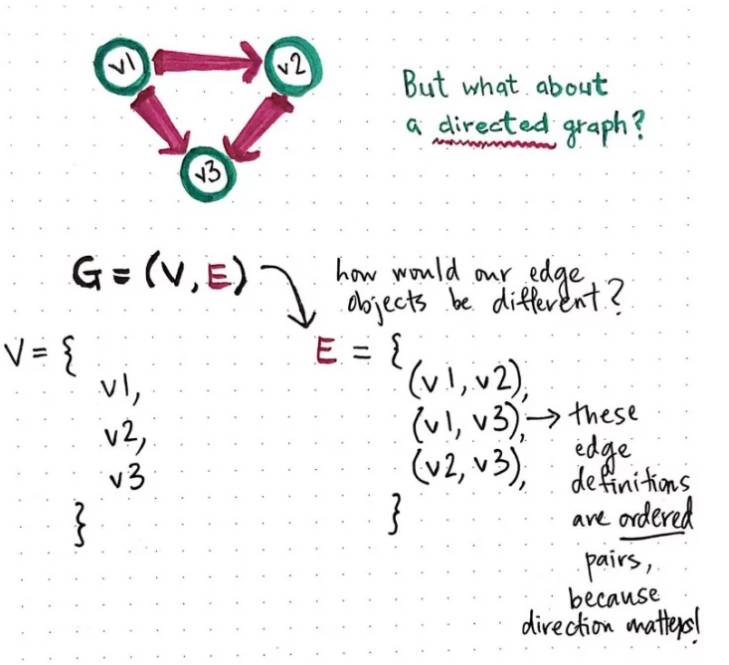 v1
v2
v3
But what about
a directed graph?
G = (V, E)
how would our edge
objects be different?
V = {
v1,
v2,
v3
}
E = {
(v1, v2),
(v1, v3), → these
(v2, v3),
edge
definitions
}
are ordered
pairs,
because
direction matters!